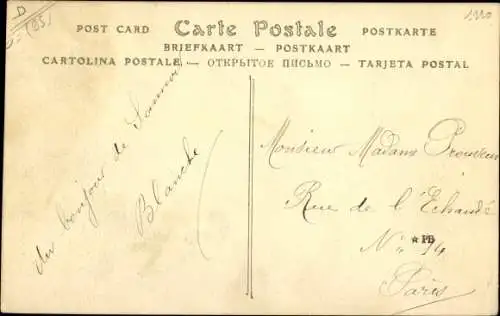 D
POST CARD Carte Postale POSTKARTE
BRIEFKAART — POSTKAART
CARTOLINA POSTALE — ОТКРЫТОЕ ПИСЬМО — TARJETA POSTAL
un bonjour de
Blanche
Monsieur Madame
Rue de l'Echaudé
N° 14
*PB
Paris